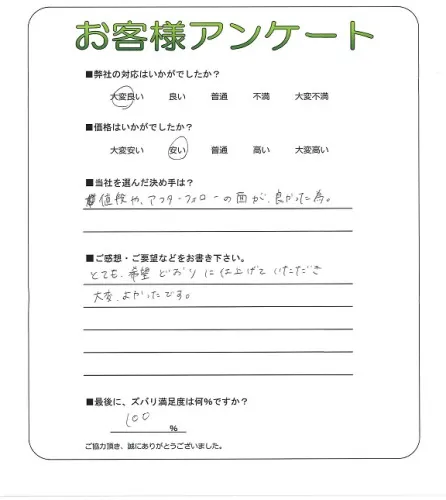 お客様アンケート
■弊社の対応はいかがでしたか？
大変良い 良い 普通 不満 大変不満
■価格はいかがでしたか？
大変安い 安い 普通 高い 大変高い
■当社を選んだ決め手は？
値段や、アフターフォローの面が、良かった為。
■ご感想・ご要望などをお書き下さい。
とても、希望どおりに仕上げていただき
大変、よかったです。
■最後に、ズバリ満足度は何%ですか？
100 %
ご協力頂き、誠にありがとうございました。